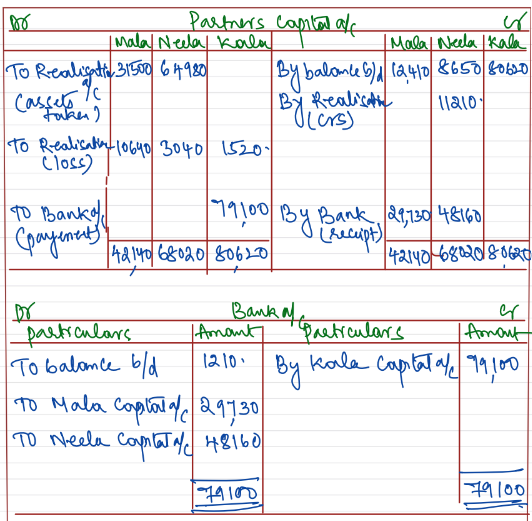 Dr Partners Capital a/c Cr
Mala Neela Kala Mala Neela Kala
To Realisation a/c 31500 64980 By balance b/d 12,410 8650 80620
(assets taken) By Realisation (crs) 11210.
To Realisation (loss) 10640 3040 1520.
To Bank a/c (payment) 79,100 By Bank (receipt) 29,730 48160
42,140 68020 80620 42140 68020 80620
Dr Bank a/c Cr
Particulars Amount Particulars Amount
To balance b/d 1210. By Kala Capital a/c 79,100
To Mala Capital a/c 29,730
To Neela Capital a/c 48160
79100 79100